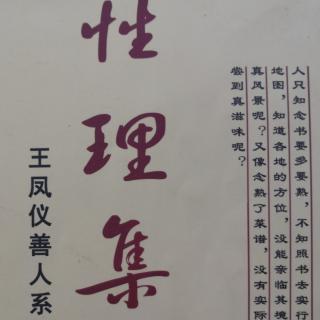 人只知念书要多要熟，不知照书去实行
地图，知道各地的方位，没能亲临其境
真风景呢？又像念熟了菜谱，没有实际
尝到真滋味呢？
性理集
王凤仪善人系